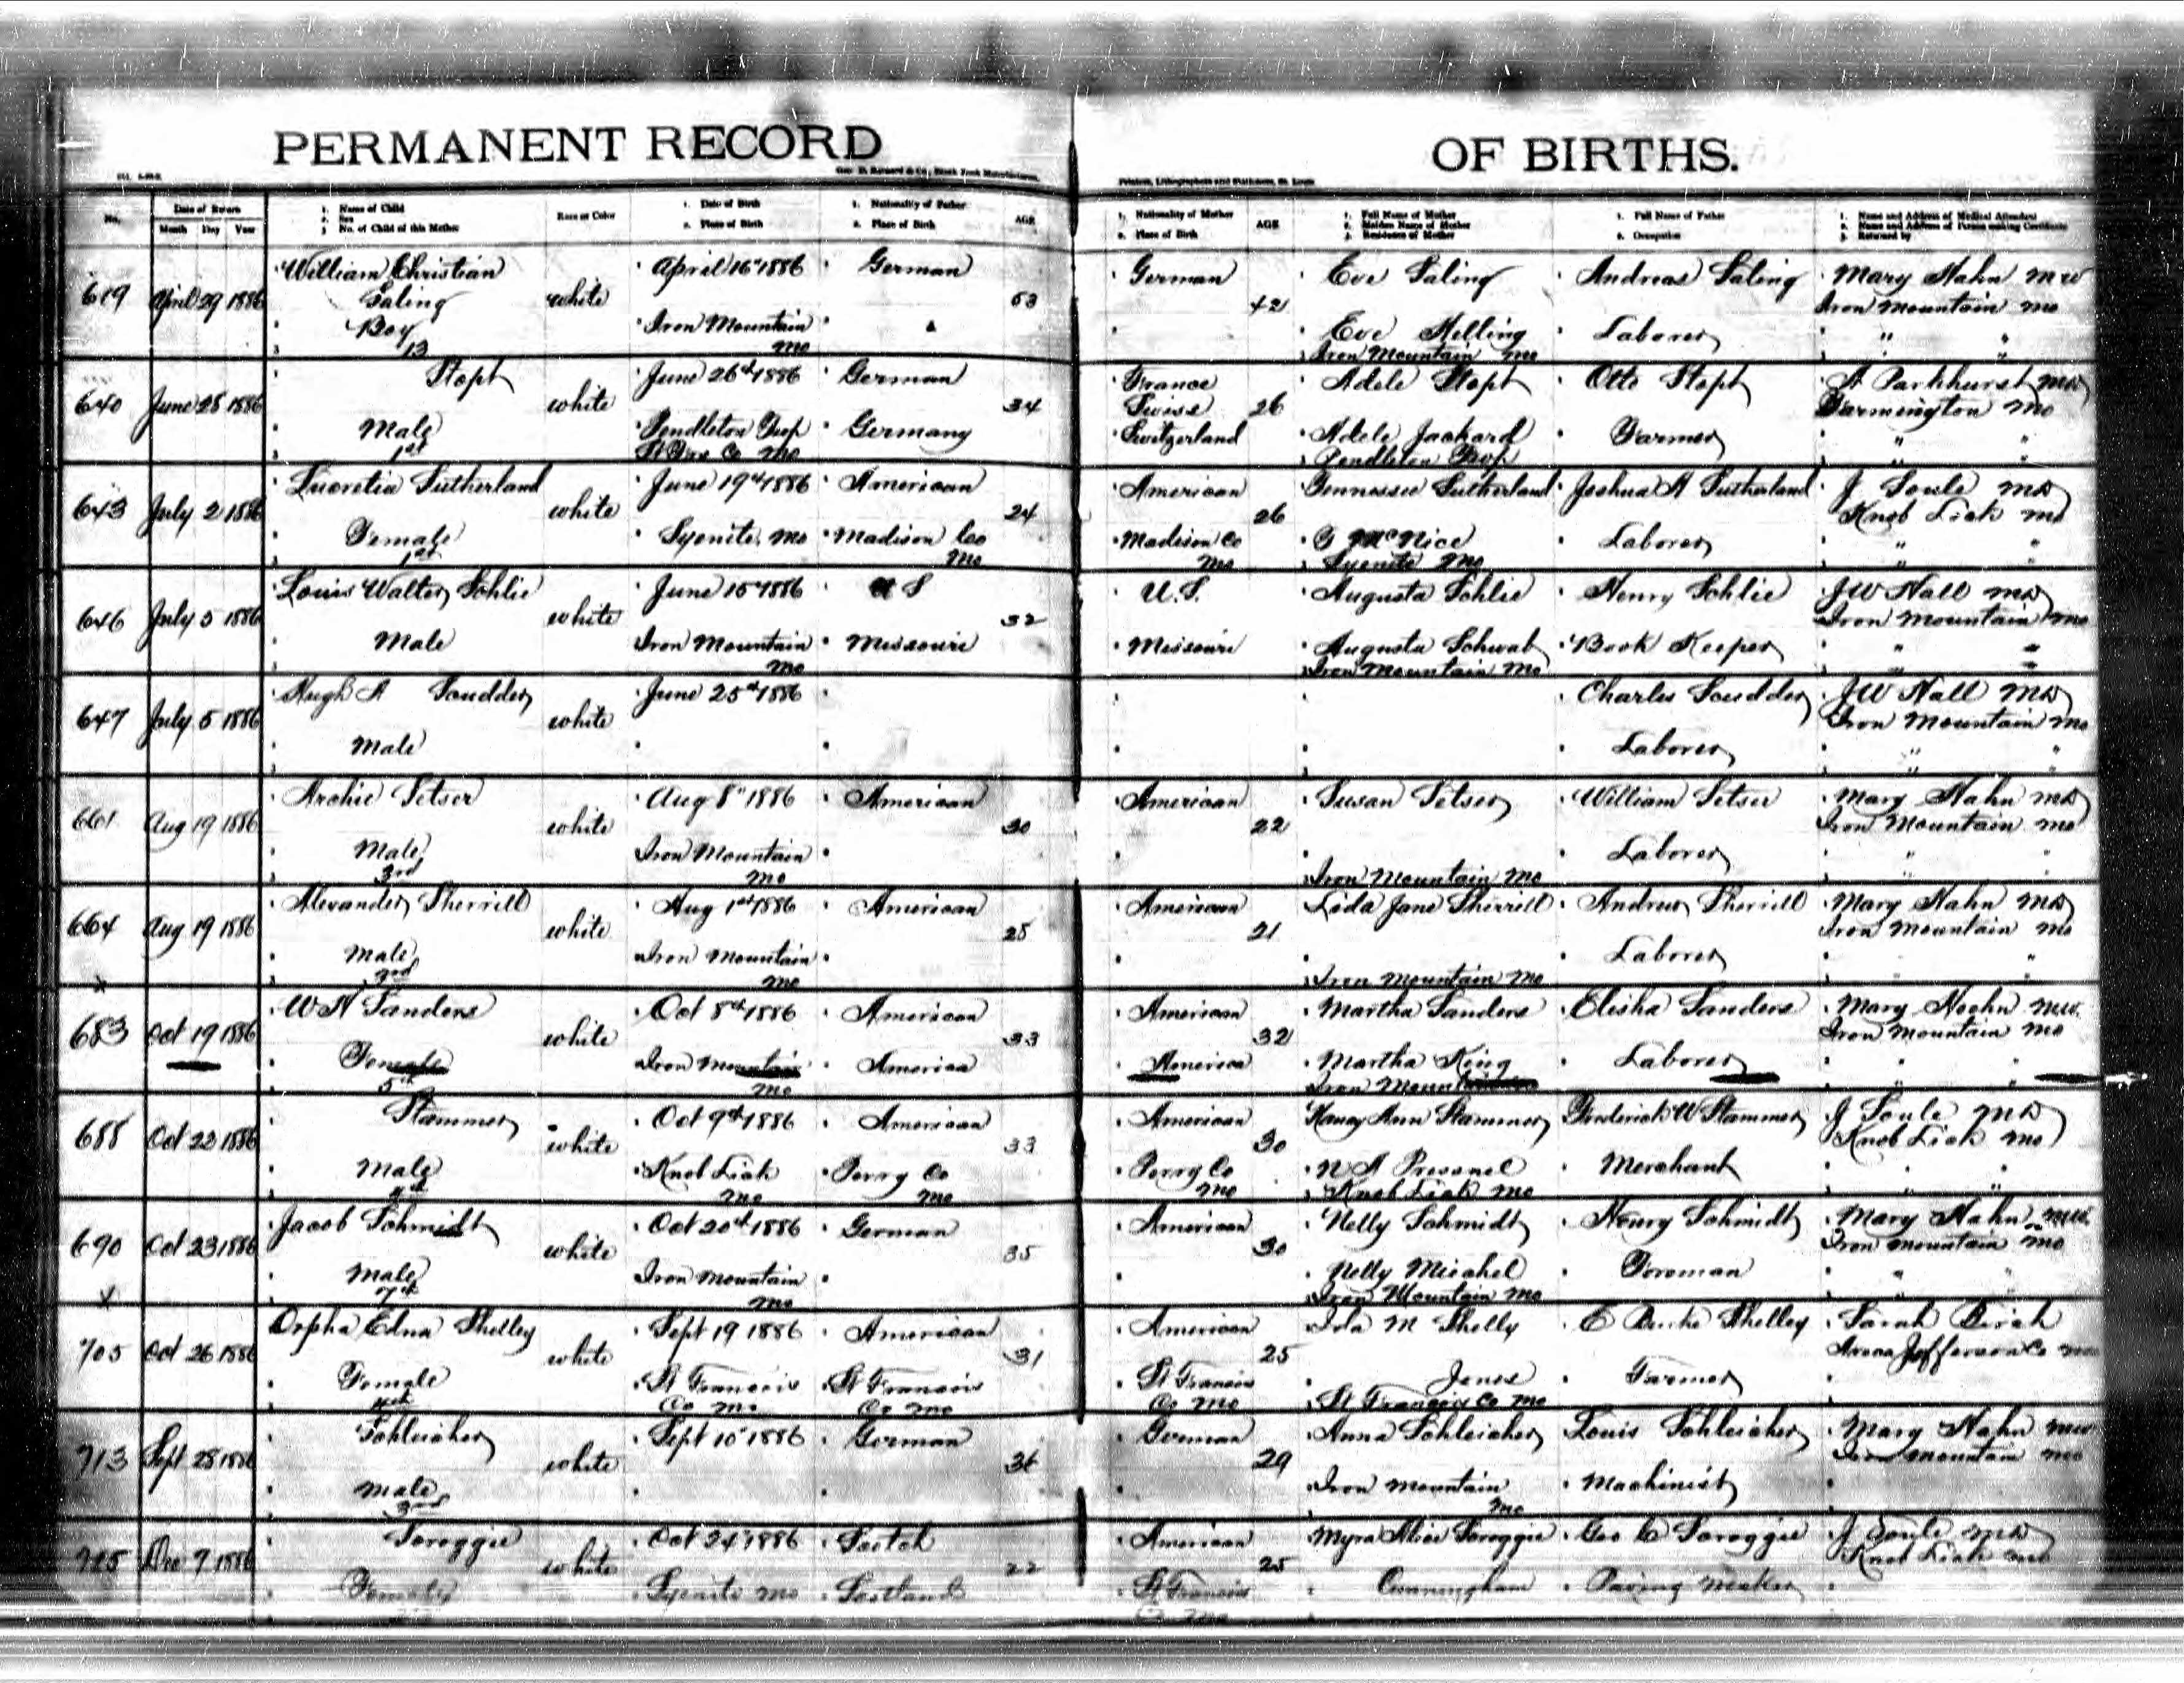 PERMANENT RECORD OF BIRTHS.
Geo. D. Barnard & Co., Blank Book Manufacturers,
Printers, Lithographers and Stationers, St. Louis
No.
Date of Return
Month Day Year
1. Name of Child
2. Sex
3. No. of Child of this Mother
Race or Color
1. Date of Birth
2. Place of Birth
1. Nationality of Father
2. Place of Birth
AGE
1. Nationality of Mother
2. Place of Birth
AGE
1. Full Name of Mother
2. Maiden Name of Mother
3. Residence of Mother
1. Full Name of Father
2. Occupation
1. Name and Address of Medical Attendant
2. Name and Address of Person making Certificate
3. Returned by
619 April 29 1886
William Christian
Saling
Boy
13
white
April 16" 1886
Iron Mountain
Mo
German
53
German
42
Eve Saling
Eve Helling
Iron Mountain Mo
Andreas Saling
Laborer
Mary Hahn MW
Iron Mountain Mo
" "
" "
640 June 28 1886
Stopt
Male
1st
white
June 26th 1886
Pendleton Twsp
St Fran Co Mo
German
Germany
34
France
Swiss
Switzerland
26
Adele Stopt
Adele Jackard
Pendleton Twsp
Otto Stopt
Farmer
A Parkhurst MD
Farmington Mo
" "
" "
643 July 2 1886
Lucretia Sutherland
Female
1st
white
June 19th 1886
Syenite, Mo
American
Madison Co
Mo
24
American
Madison Co
Mo
26
Gennessee Sutherland
G McNice
Syenite Mo
Joshua A Sutherland
Laborer
J Soule MD
Knob Lick Mo
" "
" "
646 July 5 1886
Louis Walter Schlie
Male
white
June 15" 1886
Iron Mountain
Mo
U S
Missouri
32
U.S.
Missouri
Augusta Schlie
Augusta Schwab
Iron Mountain Mo
Henry Schlie
Book Keeper
JW Hall MD
Iron Mountain Mo
" "
" "
647 July 5 1886
Hugh A Scudder
Male
white
June 25th 1886
Charles Scudder
Laborer
JW Hall MD
Iron Mountain Mo
" "
" "
661 Aug 19 1886
Archie Setser
Male
3rd
white
Aug 8" 1886
Iron Mountain
Mo
American
30
American
22
Susan Setser
Iron Mountain Mo
William Setser
Laborer
Mary Hahn MD
Iron Mountain Mo
" "
" "
664 Aug 19 1886
Alexander Sherrill
Male
white
Aug 1st 1886
Iron Mountain
Mo
American
25
American
21
Leda Jane Sherrill
Iron Mountain Mo
Andrew Sherrill
Laborer
Mary Hahn MD
Iron Mountain Mo
" "
" "
x
683 Oct 19 1886
W H Sanders
Female
5th
white
Oct 8th 1886
Iron Mountain
Mo
American
America
33
American
America
32
Martha Sanders
Martha King
Iron Mountain
Elisha Sanders
Laborer
Mary Hoehn MW.
Iron Mountain Mo
" "
" "
688 Oct 23 1886
Stammer
Male
4th
white
Oct 9th 1886
Knob Lick
Mo
American
Perry Co
Mo
33
American
Perry Co
Mo
30
Nancy Ann Stammer
N A Presnel
Knob Lick Mo
Frederick W Stammer
Merchant
J Soule MD
Knob Lick Mo
" "
" "
690 Oct 23 1886
Jacob Schmidt
Male
7th
white
Oct 20th 1886
Iron Mountain
Mo
German
35
American
30
Nelly Schmidt
Nelly Micahel
Iron Mountain Mo
Henry Schmidt
Foreman
Mary Hahn MW.
Iron Mountain Mo
" "
" "
x
705 Oct 26 1886
Orpha Edna Shelley
Female
4th
white
Sept 19 1886
St Francois
Co Mo
American
St Francois
Co Mo
31
American
St Francois
Co Mo
25
Ida M Shelly
Jones
St Francois Co Mo
Shelley
Farmer
Sarah Birch
Jefferson Co Mo
713 Sept 28 1886
Schleicher
Male
3rd
white
Sept 10" 1886
German
36
German
29
Anna Schleicher
Iron Mountain
Mo
Louis Schleicher
Machinist
Mary Hahn MW
Iron Mountain Mo
715 Dec 7 1886
Scroggie
Female
white
Oct 24" 1886
Syenite Mo
Scotch
Scotland
22
American
St Francois
Co Mo
25
Myra Alice Scroggie
Cunningham
Geo C Scroggie
Paving Maker
J Soule MD
Knob Lick Mo